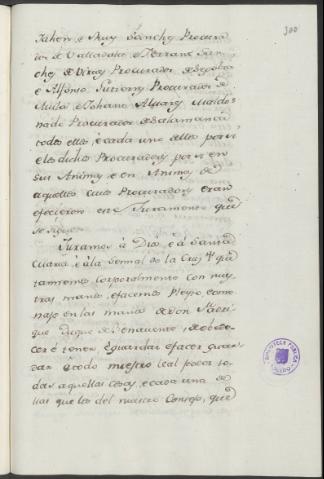 300
Jahen, e Ruy Sanchez Procura
dor de Valladolid, e Ferrant San
chez de Virues Procurador de Segobia
e Alfonso Procurador de
Avila, e Johan Alvarez Maldo
nado Procurador de Salamanca
todos ellos, e cada uno dellos por si
e los dichos Procuradores por si e en
sus Animas e en Animas de
aquellos cuios Procuradores eran
eficieron este Juramento que
se sigue:
Juramos á Dios, e á Santa
Maria, e á la Señal de la Cruz que
tannemos corporalmente con nues
tras manos, efacemos Pleyto e ome
nage en las manos de Don Fadri
que Duque de Benavente, de obede
cer é tener, é guardar, efacer guar
dar á todo nuestro leal poder to
das aquellas cosas, e cada una de
llas que los del nuestro Consejo, que
BIBLIOTECA PUBLICA